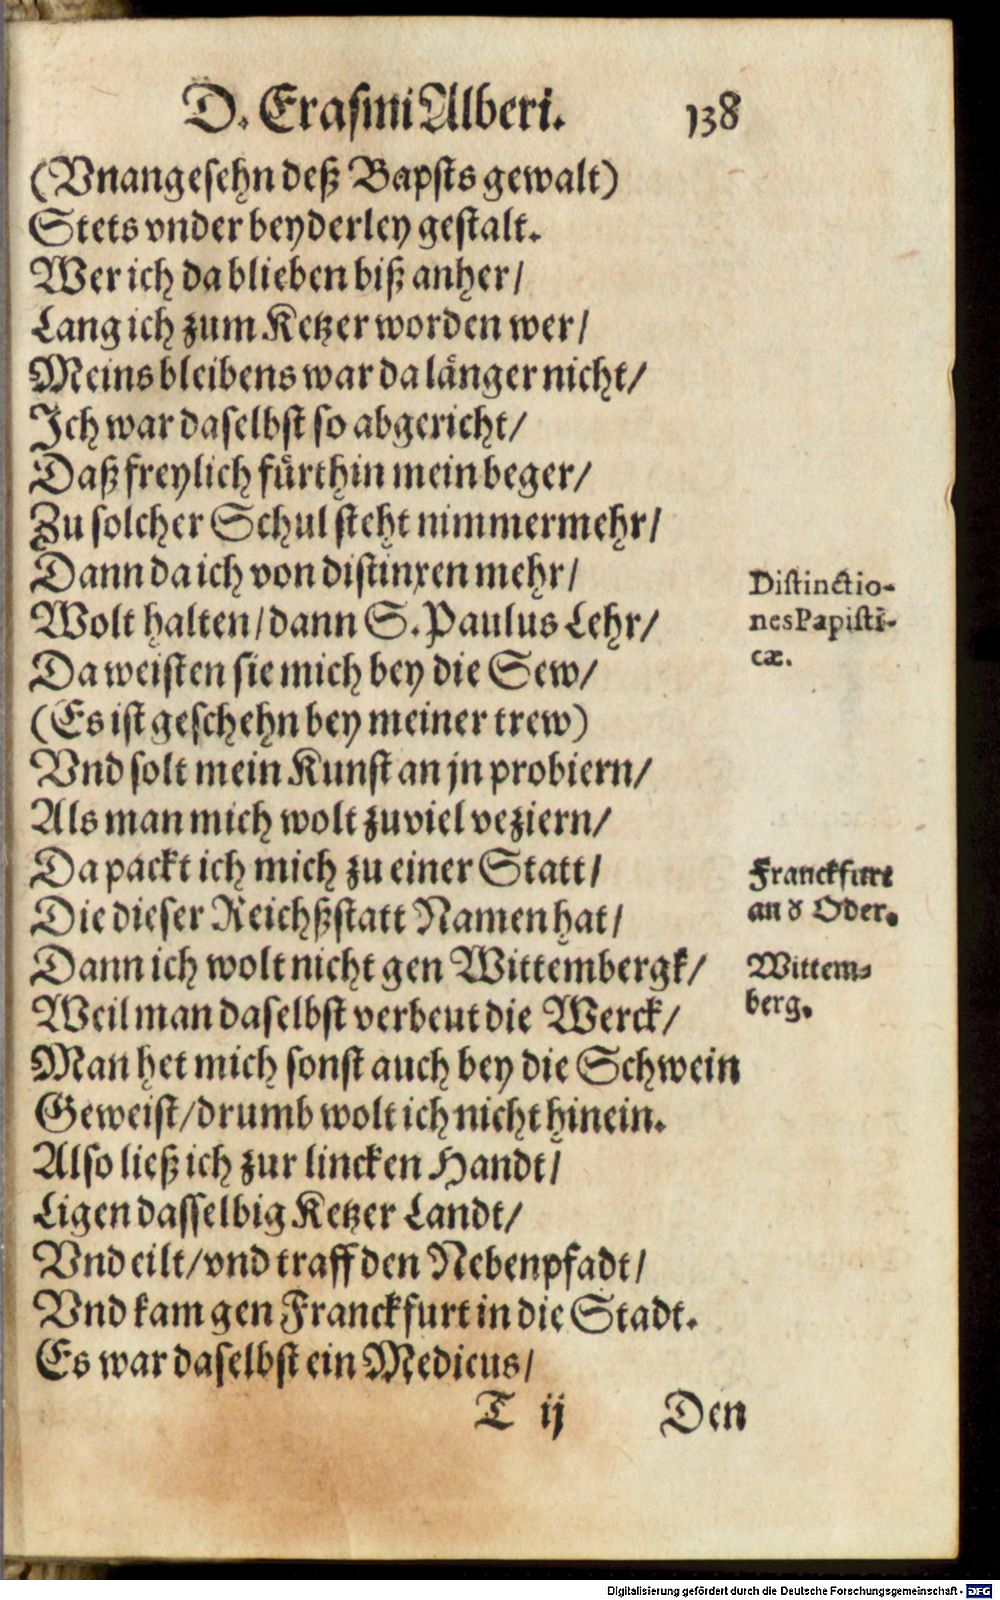 D. Erasmi Alberi. 138
(Vnangesehn deß Bapsts gewalt)
Stets vnder beyderley gestalt.
Wer ich da blieben biß anher/
Lang ich zum Ketzer worden wer/
Meins bleibens war da länger nicht/
Ich war daselbst so abgericht/
Daß freylich fürthin mein beger/
Zu solcher Schul steht nimmermehr/
Dann da ich von distinxen mehr/
Wolt halten/dann S. Paulus Lehr/
Da weisten sie mich bey die Sew/
(Es ist geschehn bey meiner trew)
Vnd solt mein Kunst an jn probiern/
Als man mich wolt zuviel veziern/
Da packt ich mich zu einer Statt/
Die dieser Reichßstatt Namen hat/
Dann ich wolt nicht gen Wittembergk/
Weil man daselbst verbeut die Werck/
Man het mich sonst auch bey die Schwein
Geweist/drumb wolt ich nicht hinein.
Also ließ ich zur lincken Handt/
Ligen dasselbig Ketzer Landt/
Vnd eilt/vnd traff den Nebenpfadt/
Vnd kam gen Franckfurt in die Stadt.
Es war daselbst ein Medicus/
T ij Den
Distinctio-
nes Papisti-
cæ.
Franckfurt
an d Oder.
Wittem-
berg.
Digitalisierung gefördert durch die Deutsche Forschungsgemeinschaft - DFG